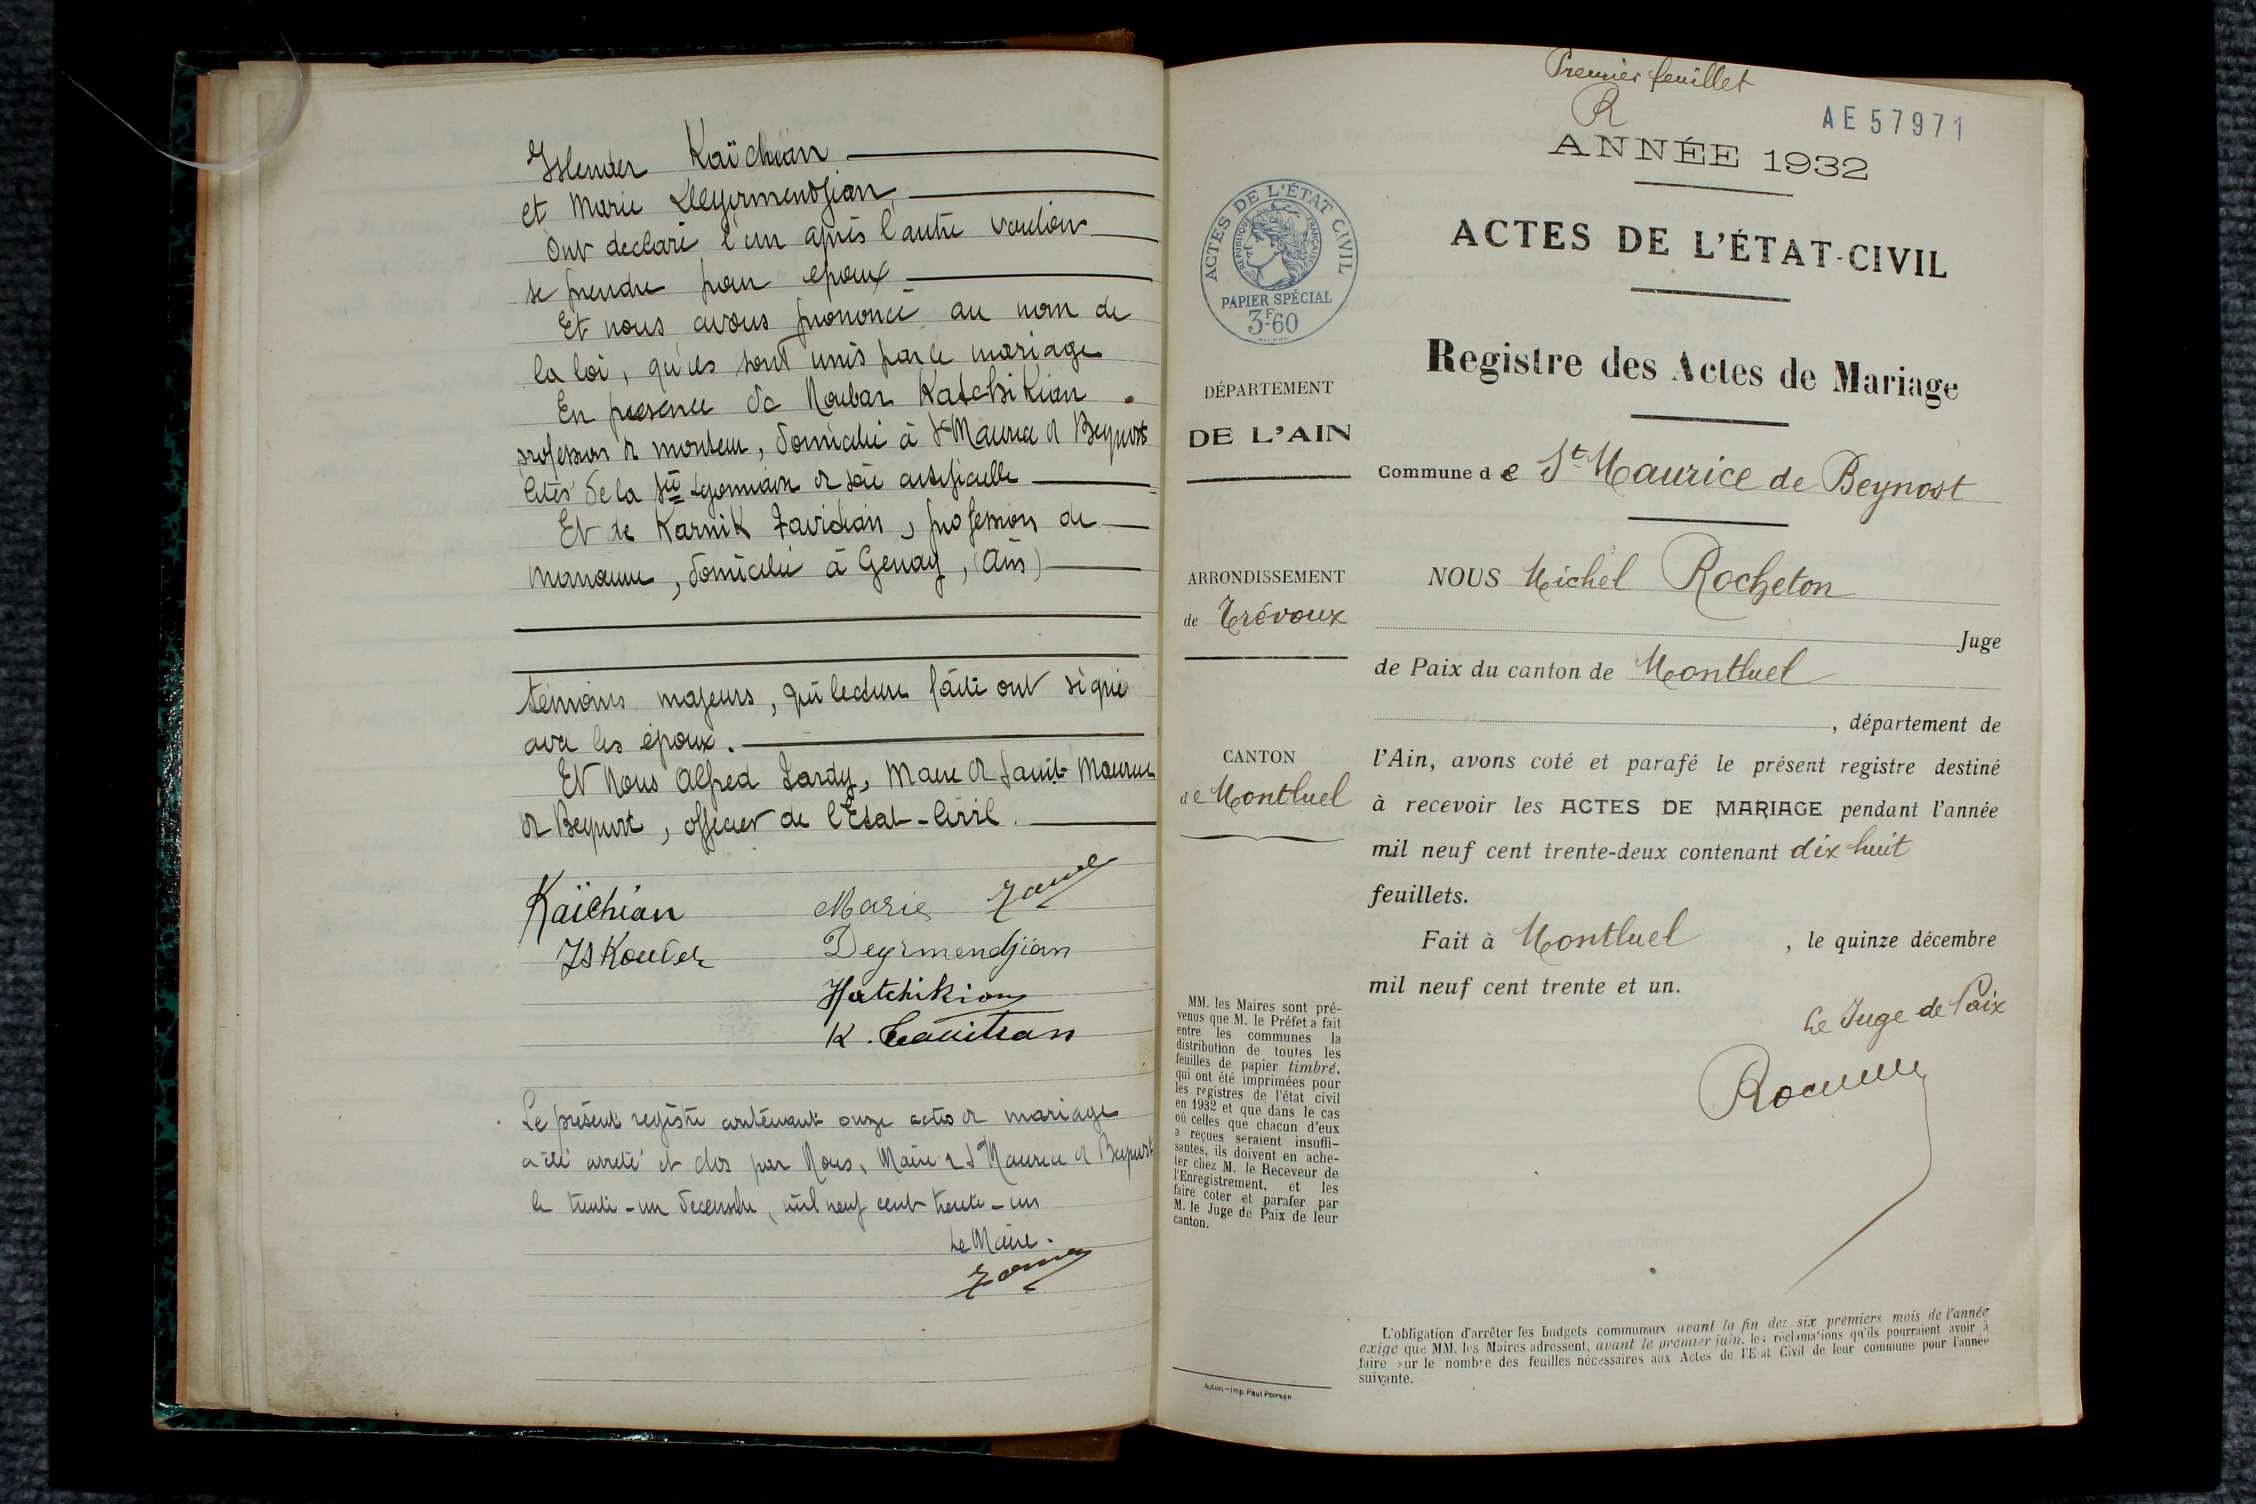 Kaïchian
et Marie Deyirmendjian,
Ont declaré l'un après l'autre vouloir
se prendre pour epoux
Et nous avons prononcé au nom de
la loi, qu'ils sont unis par le mariage
En presence de Noubar Katchikian
profession de monteur, domicilié à St Maurice de Beynost
cités de la Sté Lyonnaise de soie artificielle
Et de Karnik Tavidian, profession de
manœuvre, domicilié à Genay, (Ain)
témoins majeurs, qui lecture faite ont signé
avec les époux.
Et Nous Alfred Tardy, Maire de Saint Maurice
de Beynost, officier de l'Etat-Civil.
Kaïchian Marie
Deyrmendjian
Hatchikian
K.
Le présent registre contenant onze actes de mariage
a été arrêté et clos par Nous, Maire de St Maurice de Beynost
le trente-un décembre, mil neuf cent trente-un
Le Maire.
Premier feuillet
R
AE57971
ANNÉE 1932
ACTES DE L'ÉTAT-CIVIL
Registre des Actes de Mariage
Commune de St Maurice de Beynost
NOUS Michel Rocheton
Juge
de Paix du canton de Montluel
, département de
l'Ain, avons coté et parafé le présent registre destiné
à recevoir les ACTES DE MARIAGE pendant l'année
mil neuf cent trente-deux contenant dix huit
feuillets.
Fait à Montluel , le quinze décembre
mil neuf cent trente et un.
Le Juge de Paix
ACTES DE L'ÉTAT CIVIL
REPUBLIQUE FRANÇAISE
PAPIER SPÉCIAL
3F60
DÉPARTEMENT
DE L'AIN
ARRONDISSEMENT
de Trévoux
CANTON
de Montluel
MM. les Maires sont pré-
venus que M. le Préfet a fait
entre les communes la
distribution de toutes les
feuilles de papier timbré,
qui ont été imprimées pour
les registres de l'état civil
en 1932 et que dans le cas
où celles que chacun d'eux
a reçues seraient insuffi-
santes, ils doivent en ache-
ter chez M. le Receveur de
l'Enregistrement, et les
faire coter et parafer par
M. le Juge de Paix de leur
canton.
L'obligation d'arrêter les budgets communaux avant la fin des six premiers mois de l'année
exige que MM. les Maires adressent, avant le premier juin, les réclamations qu'ils pourraient avoir à
faire sur le nombre des feuilles nécessaires aux Actes de l'Etat Civil de leur commune pour l'année
suivante.